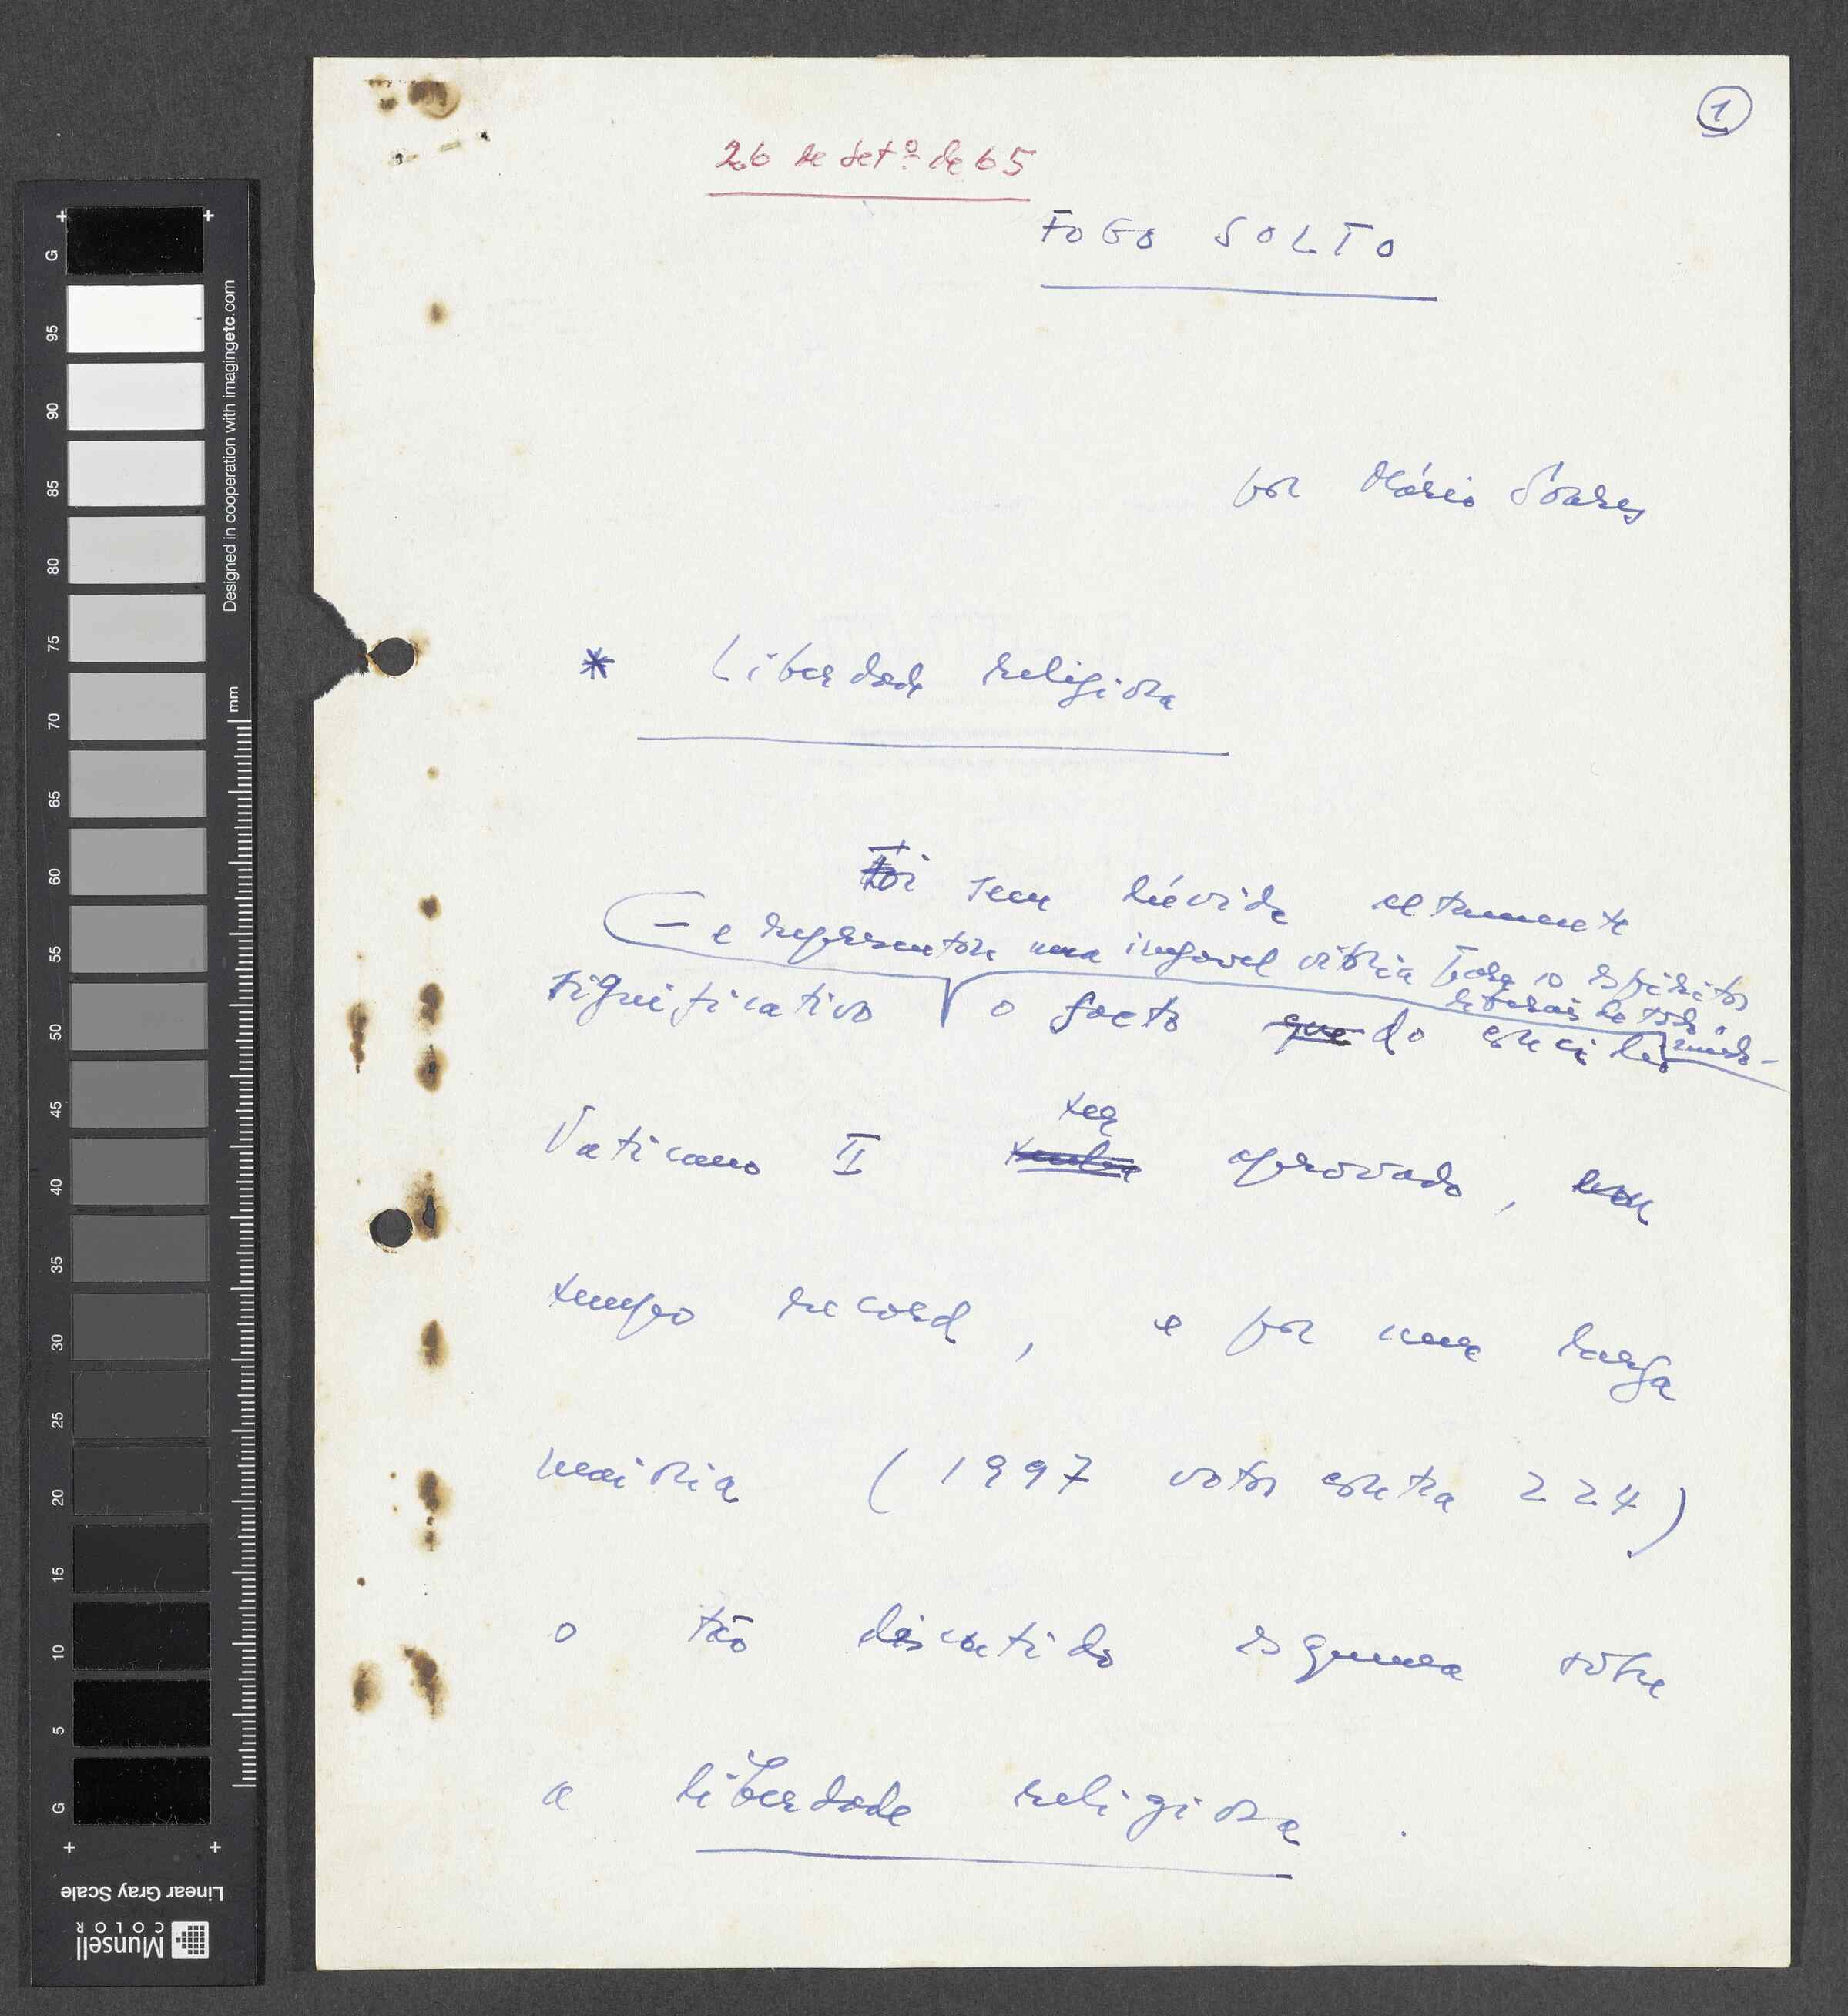 1
26 de Setº de 65
FOGO SOLTO
por Mário Soares
* Liberdade religiosa
Foi sem dúvida altamente
— e representou uma inegavel vitória para os espíritos
liberais de todo o
mundo —
significativo o facto que do concílio
Vaticano II ter
tenha aprovado, em
tempo record, e por uma larga
maioria (1997 votos contra 224)
o tão discutido esquema sôbre
a liberdade religiosa.
G 95 90 85 80 75 70 65 60 55 50 45 40 35 30 25 20 15 10 5 G
mm
Designed in cooperation with imagingetc.com
Linear Gray Scale
Munsell
COLOR